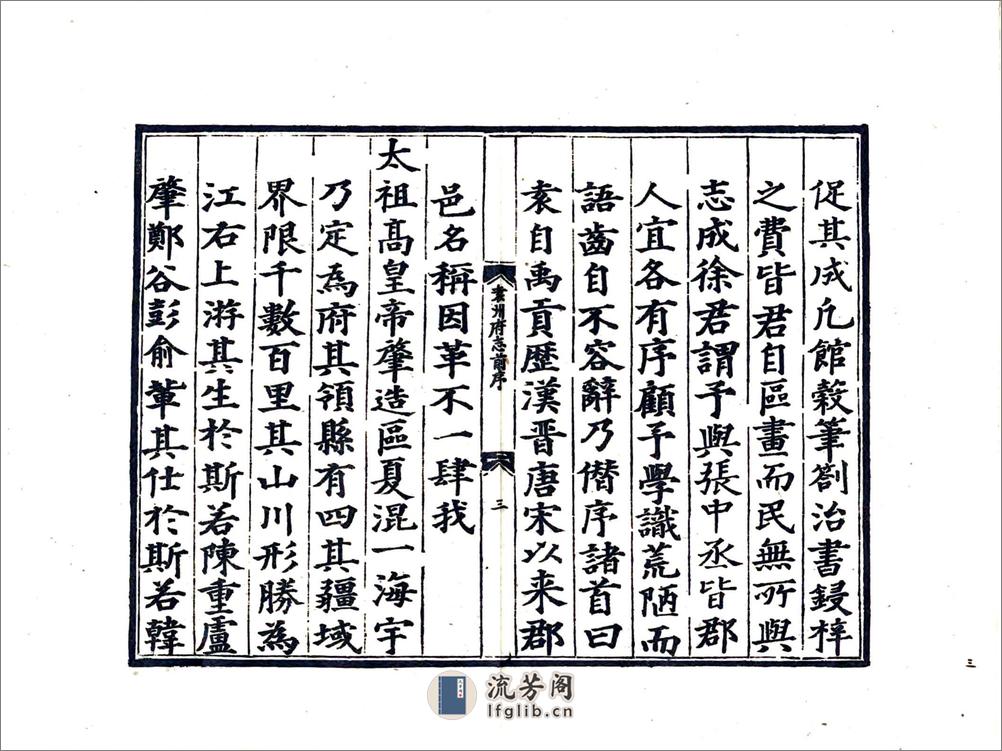 促其成凢館榖筆劄治書鋟梓
之費皆君自區畫而民無所與
志成徐君謂予與張中丞皆郡
人宜各有序顧予學識荒陋而
語齒自不容辭乃僭序諸首曰
袁自禹貢歷漢晋唐宋以来郡
袁州府志前序
三
邑名稱因革不一肆我
太祖高皇帝肇造區夏混一海宇
乃定為府其領縣有四其疆域
界限千數百里其山川形勝為
江右上游其生於斯若陳重盧
肇鄭谷彭俞軰其仕於斯若韓
三
流芳阁
lfglib.cn